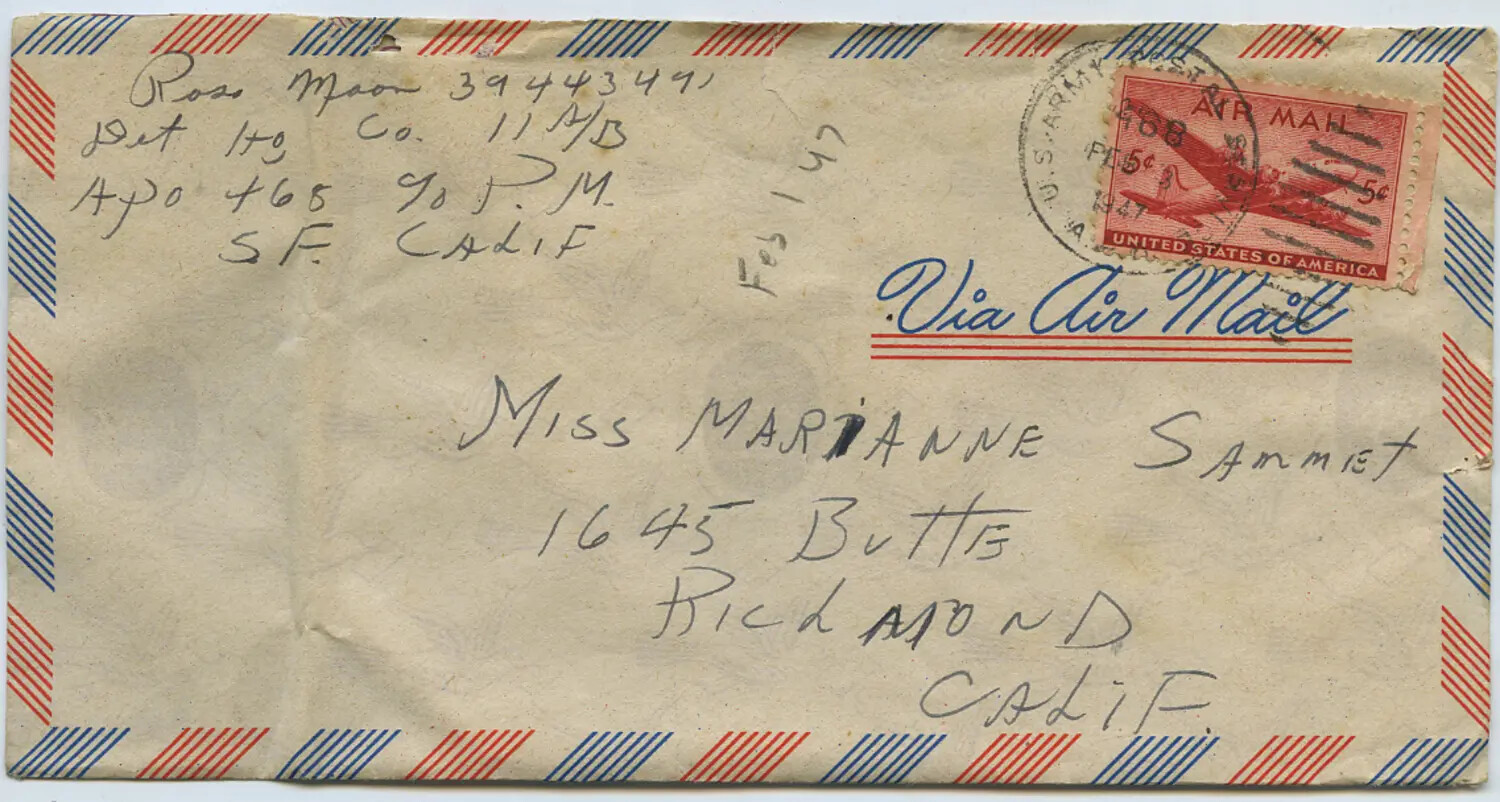 Ross Moon 39443491
Det Hq Co. 11 A/B
Apo 468 c/o P.M.
SF. CALIF
Feb 1 47
U.S. ARMY POSTAL SERVICE
468
FEB 3
1947
A.
AIR MAIL
5¢ 5¢
UNITED STATES OF AMERICA
Via Air Mail
MISS MARIANNE SAMMET
1645 BUTTE
RICHMOND
CALIF.